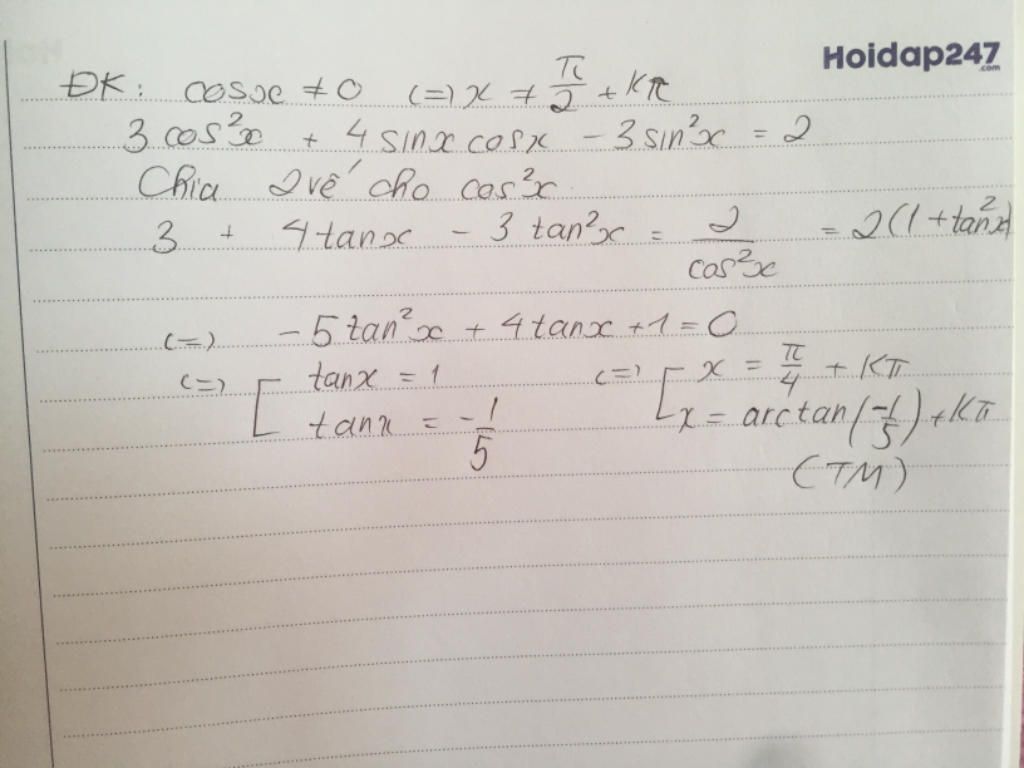 Hoidap247
.com
ĐK: cosx ≠ 0 (=) x ≠ π/2 + Kπ
3 cos²x + 4 sinx cosx - 3 sin²x = 2
Chia 2 vế cho cos²x
3 + 4 tanx - 3 tan²x = 2/cos²x = 2(1 + tan²x)
(=) -5 tan²x + 4 tanx + 1 = 0
(=) [ tanx = 1 (=) [ x = π/4 + Kπ
tanx = -1/5 x = arctan(-1/5) + Kπ
(TM)